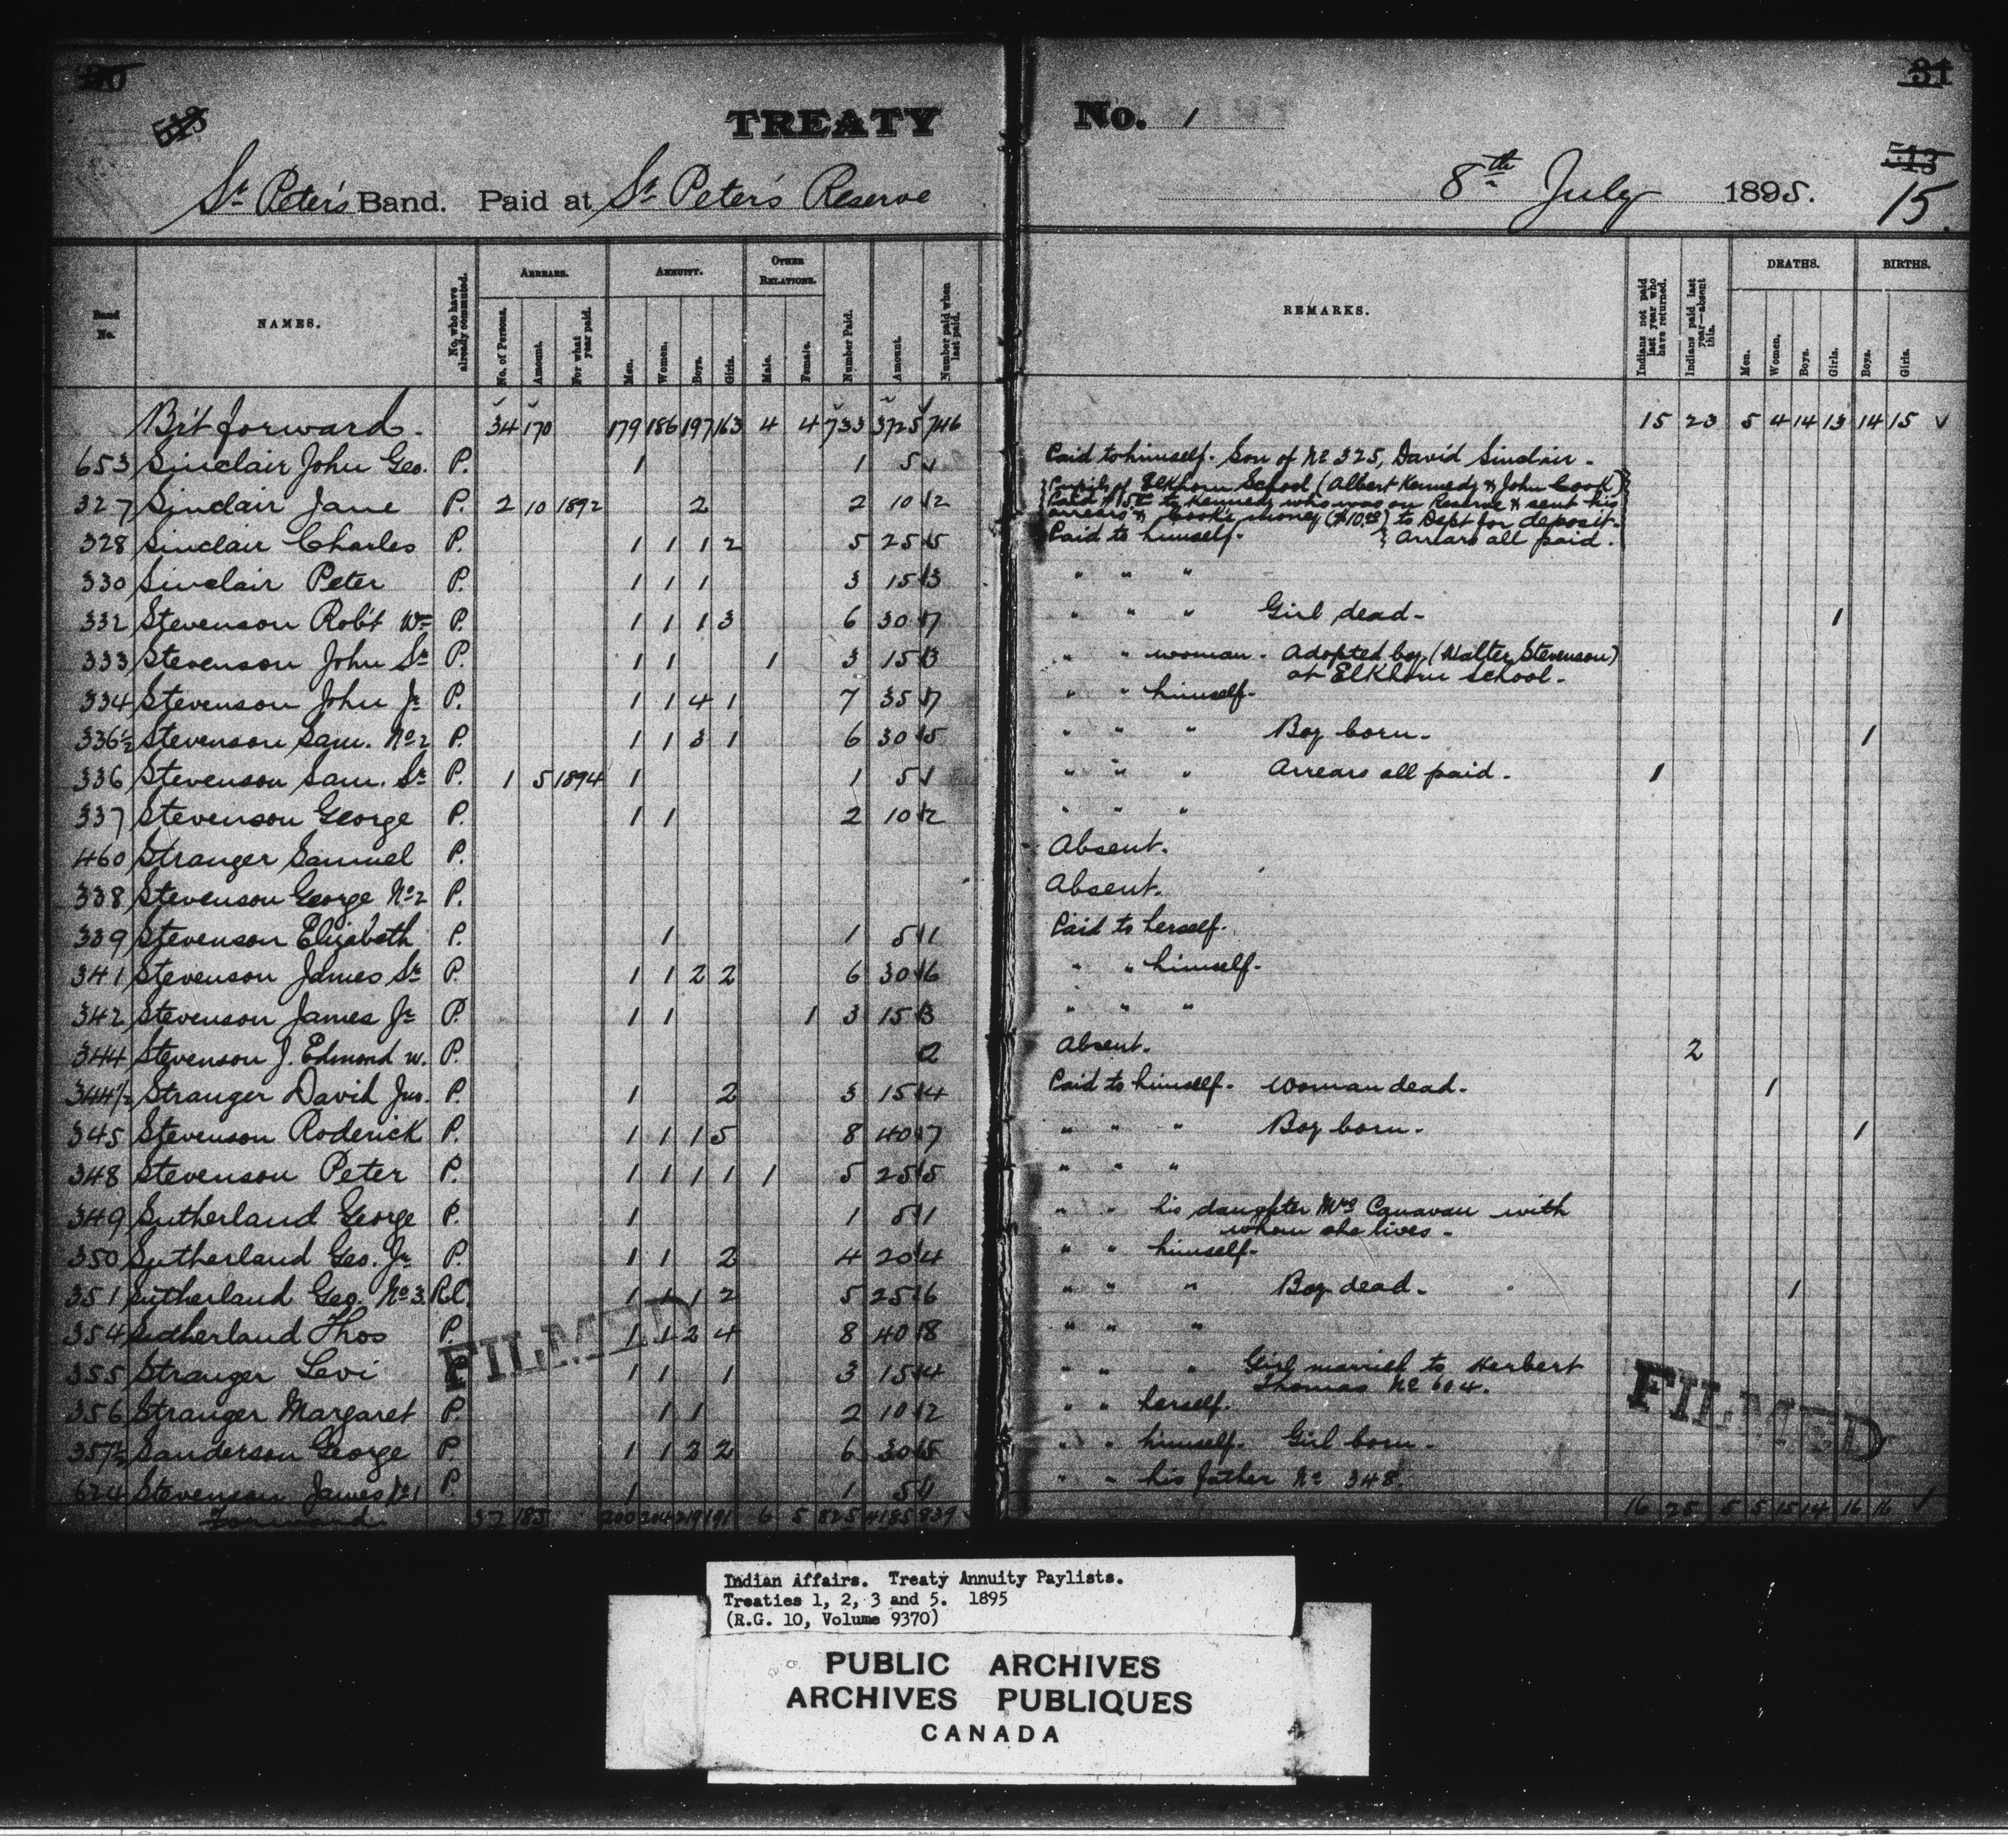 30
31
513
513
15
TREATY No. 1
St Peter's Band. Paid at St Peter's Reserve 8th July 1895.
Band No. NAMES. No. who have already commuted. ARREARS. No. of Persons. Amount. For what year paid. ANNUITY. Men. Women. Boys. Girls. OTHER RELATIONS. Male. Female. Number Paid. Amount. Number paid when last paid. REMARKS. Indians not paid last year who have returned. Indians paid last year—absent this. DEATHS. Men. Women. Boys. Girls. BIRTHS. Boys. Girls.
Br't forward. 34 170 179 186 197 163 4 4 733 3725 746 15 23 5 4 14 13 14 15 ✓
653 Sinclair John Geo. P. 1 1 5 1 Paid to himself. Son of No 325, David Sinclair.
327 Sinclair Jane P. 2 10 1892 2 2 10 2 Pupils of Elkhorn School (Albert Kennedy & John Cook)
Paid $15.00 to Kennedy who was on Reserve & sent his
arrears & Cook's money ($10.00) to Dept for deposit.
328 Sinclair Charles P. 1 1 1 2 5 25 5 Paid to himself. Arrears all paid.
330 Sinclair Peter P. 1 1 1 3 15 3 " " "
332 Stevenson Rob't Wm P. 1 1 1 3 6 30 7 " " " Girl dead. 1
333 Stevenson John Sr P. 1 1 1 3 15 3 " " woman. Adopted boy (Walter Stevenson)
at Elkhorn school.
334 Stevenson John Jr P. 1 1 4 1 7 35 7 " " himself.
336½ Stevenson Sam. No 2 P. 1 1 3 1 6 30 5 " " " Boy born. 1
336 Stevenson Sam. Sr P. 1 5 1894 1 1 5 1 " " " Arrears all paid. 1
337 Stevenson George P. 1 1 2 10 2 " " "
460 Stranger Samuel P. Absent.
338 Stevenson George No 2 P. Absent.
339 Stevenson Elizabeth P. 1 1 5 1 Paid to herself.
341 Stevenson James Sr P. 1 1 2 2 6 30 6 " " himself.
342 Stevenson James Jr P. 1 1 1 3 15 3 " " "
344 Stevenson J. Edmond w. P. 2 Absent. 2
344½ Stranger David Jnr. P. 1 2 3 15 4 Paid to himself. Woman dead. 1
345 Stevenson Roderick P. 1 1 1 5 8 40 7 " " " Boy born. 1
348 Stevenson Peter P. 1 1 1 1 1 5 25 5 " " "
349 Sutherland George P. 1 1 5 1 " " his daughter Mrs Canavan with
whom she lives.
350 Sutherland Geo. Jr P. 1 1 2 4 20 4 " " himself.
351 Sutherland Geo. No 3. R.C. 1 1 1 2 5 25 6 " " " Boy dead. 1
354 Sutherland Thos P. 1 1 2 4 8 40 8 " " "
355 Stranger Levi P. 1 1 1 3 15 4 " " " Girl married to Herbert
Thomas No 604.
356 Stranger Margaret P. 1 1 2 10 2 " " herself.
357½ Sanderson George P. 1 1 2 2 6 30 5 " " himself. Girl born.
624 Stevenson James No 1 P. 1 1 5 1 " " his father No 348.
Forward 37 185 200 204 219 191 6 5 825 4185 839 16 25 5 5 15 14 16 16 ✓
FILMED
FILMED
Indian Affairs. Treaty Annuity Paylists.
Treaties 1, 2, 3 and 5. 1895
(R.G. 10, Volume 9370)
PUBLIC ARCHIVES
ARCHIVES PUBLIQUES
CANADA